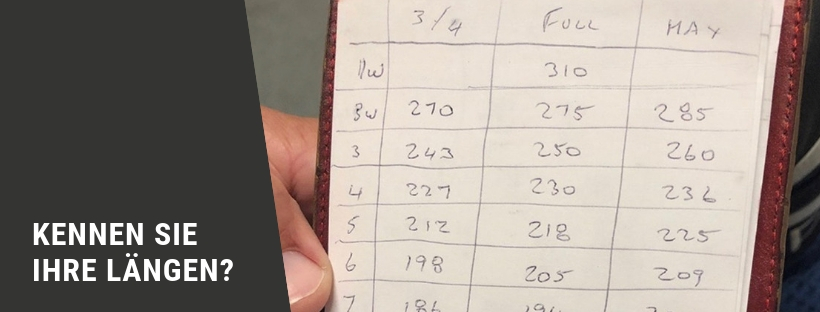 KENNEN SIE
IHRE LÄNGEN?
3/4 FULL MAX
1W 310
3W 270 275 285
3 243 250 260
4 227 230 236
5 212 218 225
6 198 205 209
7 186